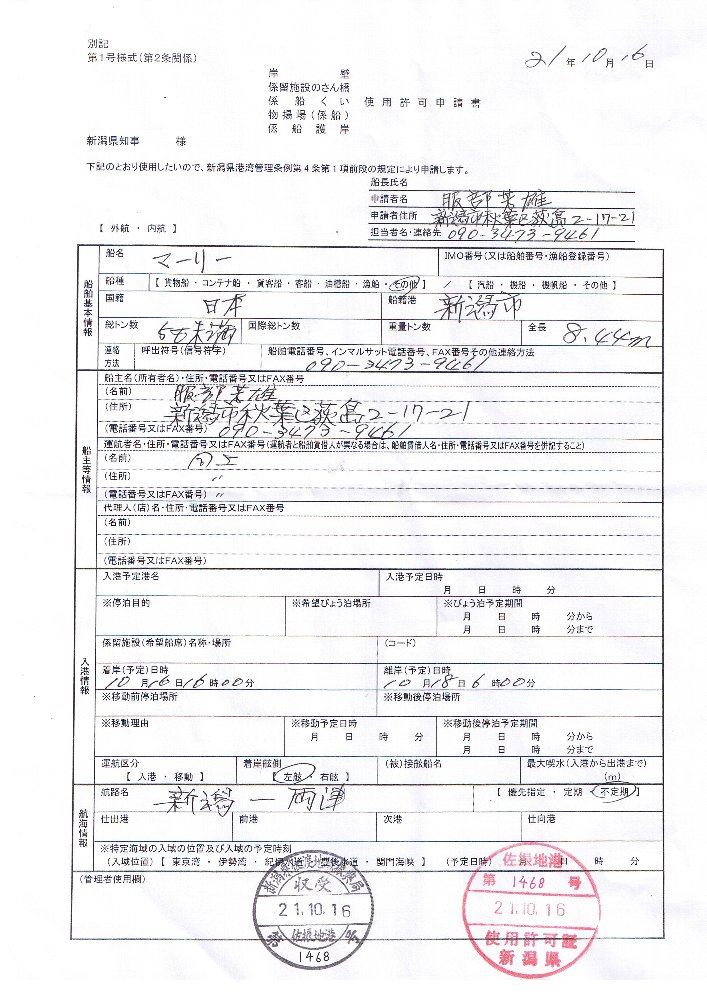 別記
第1号様式(第2条関係)
21年10月16日
岸壁
係留施設のさん橋
係船くい 使用許可申請書
物揚場(係船)
係船護岸
新潟県知事 様
下記のとおり使用したいので、新潟県港湾管理条例第4条第1項前段の規定により申請します。
船長氏名
申請者名 服部芳雄
申請者住所 新潟市秋葉区荻島2-17-21
担当者名・連絡先 090-3473-9461
【 外航 ・ 内航 】
船舶基本情報
船名 マーリー IMO番号(又は船舶番号・漁船登録番号)
船種 【 貨物船 ・ コンテナ船 ・ 貨客船 ・ 客船 ・ 油槽船 ・ 漁船 ・ その他 】 / 【 汽船 ・ 機船 ・ 機帆船 ・ その他 】
国籍 日本 船籍港 新潟市
総トン数 5t未満 国際総トン数 重量トン数 全長 8.44m
連絡方法 呼出符号(信号符字) 船舶電話番号、インマルサット電話番号、FAX番号その他連絡方法
090-3473-9461
船主等情報
船主名(所有者名)・住所・電話番号又はFAX番号
(名前) 服部芳雄
(住所) 新潟市秋葉区荻島2-17-21
(電話番号又はFAX番号) 090-3473-9461
運航者名・住所・電話番号又はFAX番号(運航者と船舶賃借人が異なる場合は、船舶賃借人名・住所・電話番号又はFAX番号を併記すること)
(名前) 同上
(住所) 〃
(電話番号又はFAX番号) 〃
代理人(店)名・住所・電話番号又はFAX番号
(名前)
(住所)
(電話番号又はFAX番号)
入港情報
入港予定港名 入港予定日時
月 日 時 分
※停泊目的 ※希望びょう泊場所 ※びょう泊予定期間
月 日 時 分から
月 日 時 分まで
係留施設(希望船席)名称・場所 (コード)
着岸(予定)日時 離岸(予定)日時
10月16日16時00分 10月18日6時00分
※移動前停泊場所 ※移動後停泊場所
※移動理由 ※移動予定日時 ※移動後停泊予定期間
月 日 時 分 月 日 時 分から
月 日 時 分まで
運航区分 着岸舷側 (被)接舷船名 最大喫水(入港から出港まで)
【 入港 ・ 移動 】 【 左舷 ・ 右舷 】 (m)
航海情報
航路名 新潟-両津 【 優先指定 ・ 定期 ・ 不定期 】
仕出港 前港 次港 仕向港
※特定海域の入域の位置及び入域の予定時刻
(入域位置) 【 東京湾 ・ 伊勢湾 ・ 紀伊水道 ・ 豊後水道 ・ 関門海峡 】 (予定日時) 月 日 時 分
(管理者使用欄)
収受
21.10.16
第 佐振地港 号
1468
佐振地港
第 1468 号
21.10.16
使用許可証
新潟県